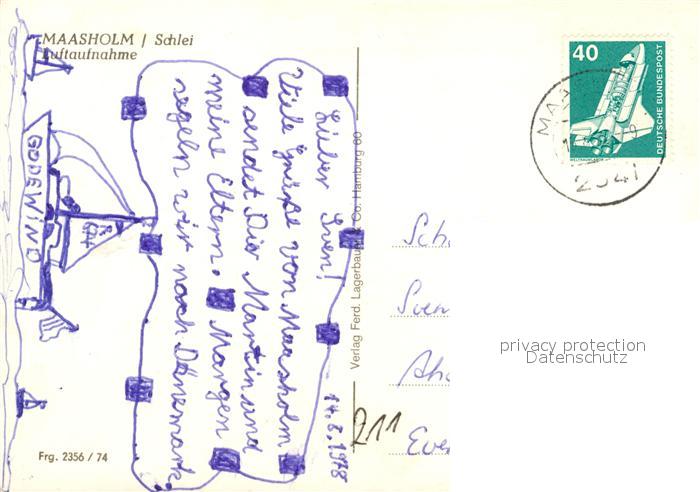 MAASHOLM / Schlei
Luftaufnahme
14.8.1978
Lieber Sven!
Viele Grüße von Maasholm
sendet Dir Martin und
meine Eltern. Morgen
segeln wir nach Dänemark
GODEWIND
Frg. 2356 / 74
Verlag Ferd. Lagerbauer & Co. Hamburg 60
211
40
DEUTSCHE BUNDESPOST
2341
Sven
privacy protection
Datenschutz